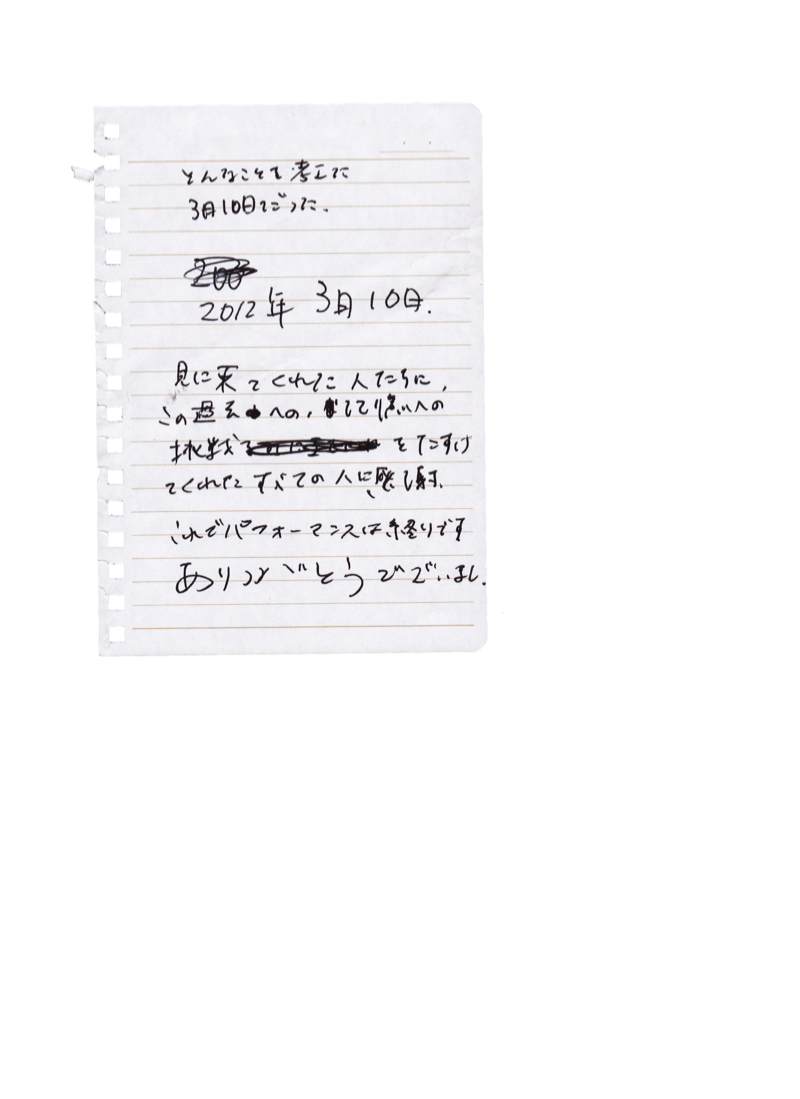 そんなことを考えた
3月10日だった.
2012年 3月10日.
見に来てくれた人たちに,
この過去への,そして憶いへの
挑戦をたすけ
てくれたすべての人に感謝.
これでパフォーマンスは終りです
ありがとうございまし.